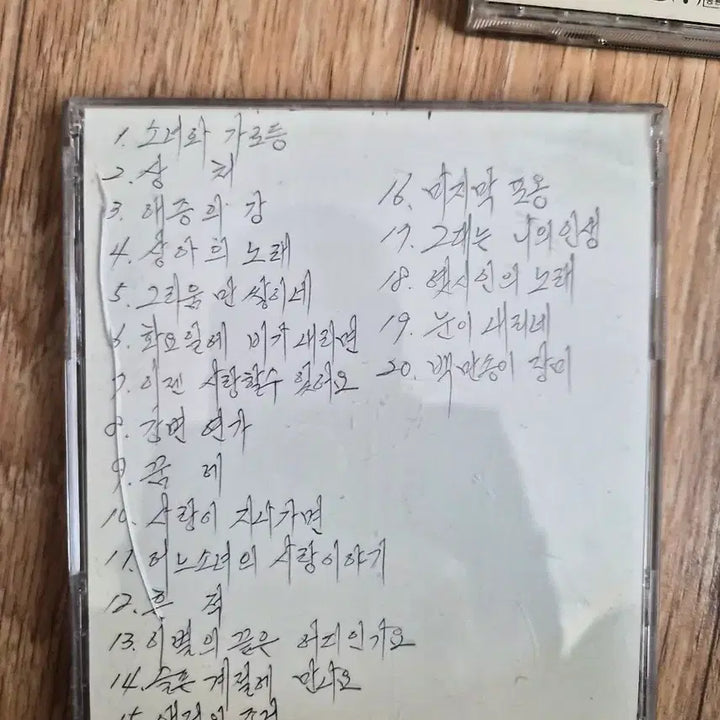 1. 소녀와 가로등
2. 상 처
3. 애증의 강
4. 상아의 노래
5. 그리움 만 쌓이네
6. 화요일에 비가 내리면
7. 이젠 사랑할수 있어요
8. 강변 연가
9. 꿈 에
10. 사랑이 지나가면
11. 어느소녀의 사랑이야기
12. 흔 적
13. 이별의 끝은 어디인가요
14. 슬픈 계절에 만나요
16. 마지막 포옹
17. 그대는 나의인생
18. 옛시인의 노래
19. 눈이 내리네
20. 백만송이 장미